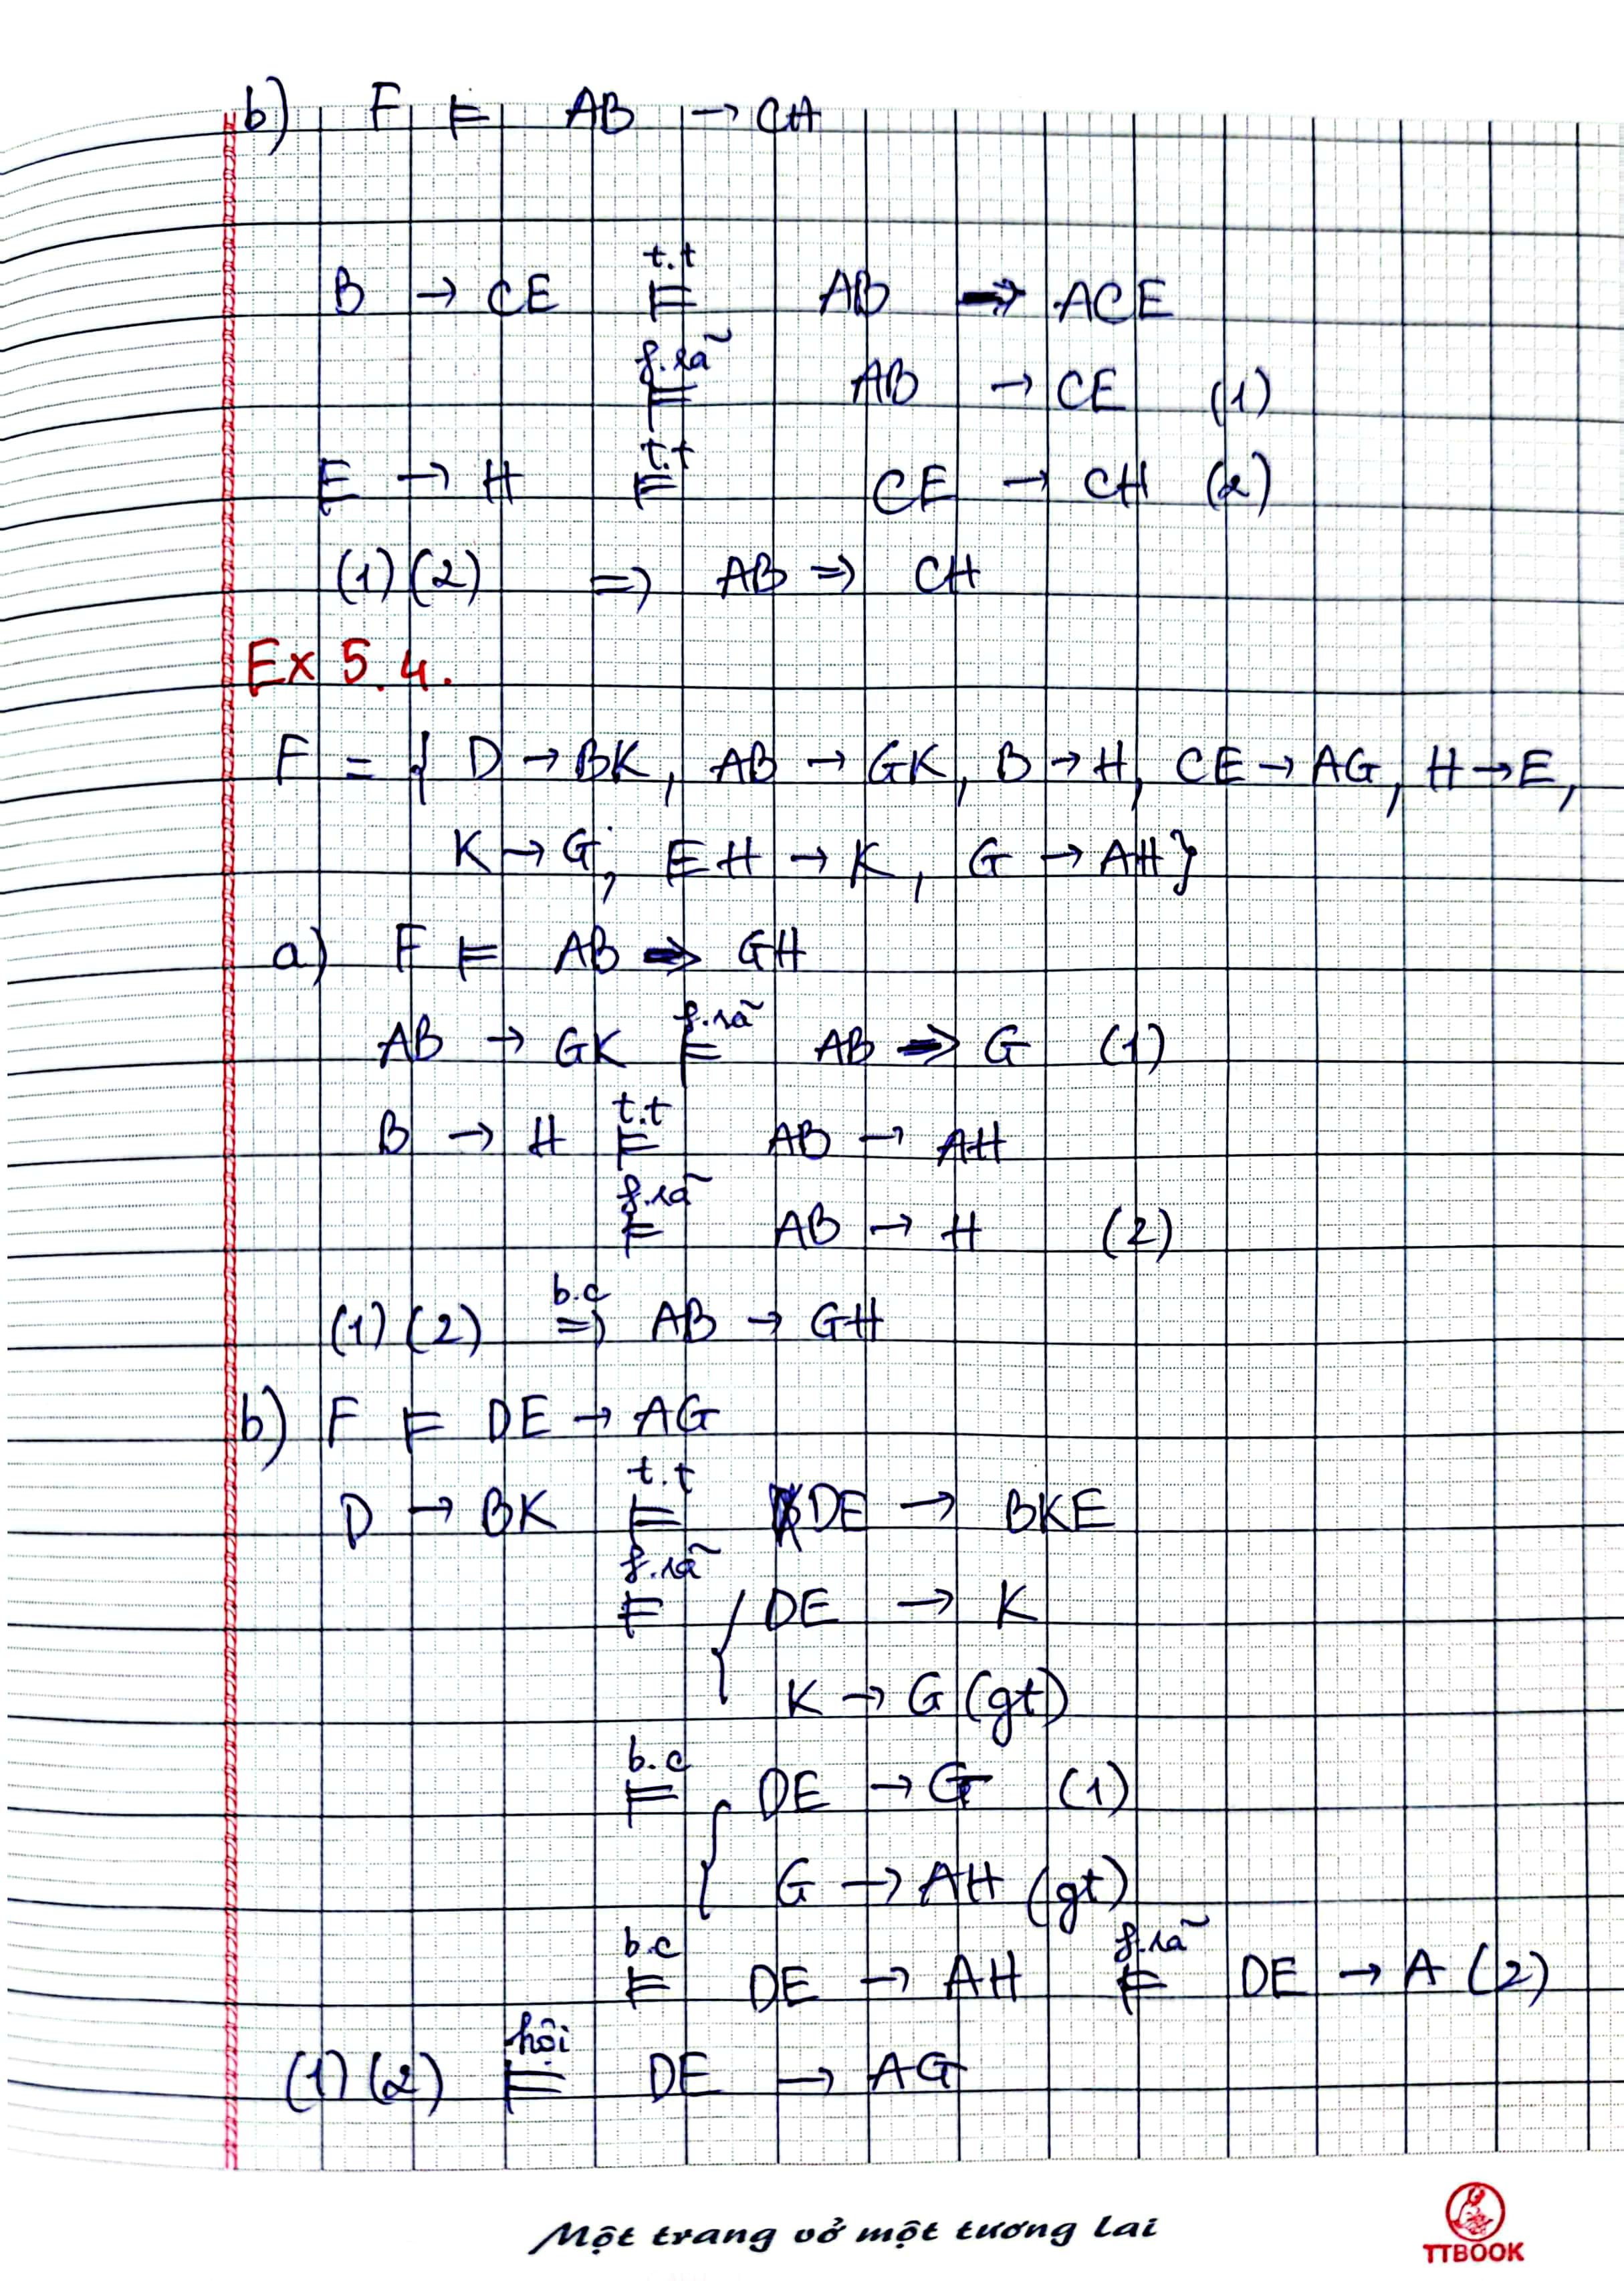 b) F ⊨ AB → CH
B → CE ⊨ t.t AB → ACE
⊨ f.rã AB → CE (1)
E → H ⊨ t.t CE → CH (2)
(1) (2) => AB => CH
Ex 5.4.
F = { D → BK, AB → GK, B → H, CE → AG, H → E,
K → G; EH → K, G → AH}
a) F ⊨ AB => GH
AB → GK ⊨ f.rã AB => G (1)
B → H ⊨ t.t AB → AH
⊨ f.rã AB → H (2)
(1) (2) => b.c AB → GH
b) F ⊨ DE → AG
D → BK ⊨ t.t DE → BKE
⊨ f.rã { DE → K
K → G (gt)
⊨ b.c { DE → G (1)
G → AH (gt)
⊨ b.c DE → AH ⊨ f.rã DE → A (2)
(1) (2) ⊨ hội DE → AG
Một trang vở một tương lai
TTBOOK